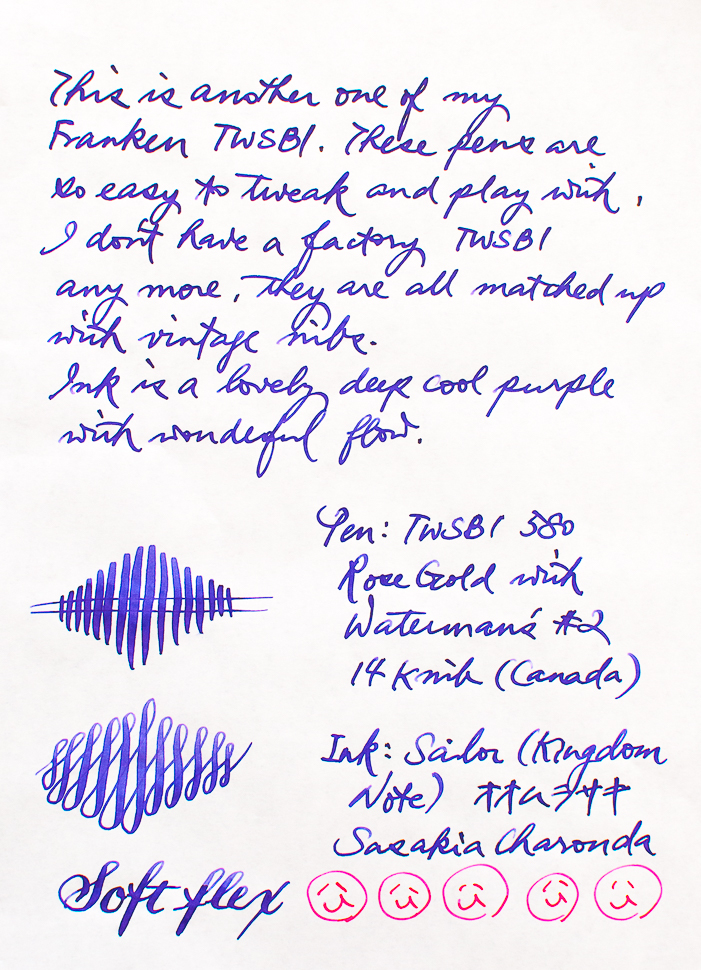 This is another one of my
Franken TWSBI. These pens are
so easy to tweak and play with,
I don't have a factory TWSBI
any more, they are all matched up
with vintage nibs.
Ink is a lovely deep cool purple
with wonderful flow.
Pen: TWSBI 580
Rose Gold with
Waterman's #2
14 K nib (Canada)
Ink: Sailor (Kingdom
Note) オオムラサキ
Sasakia Charonda
Soft flex